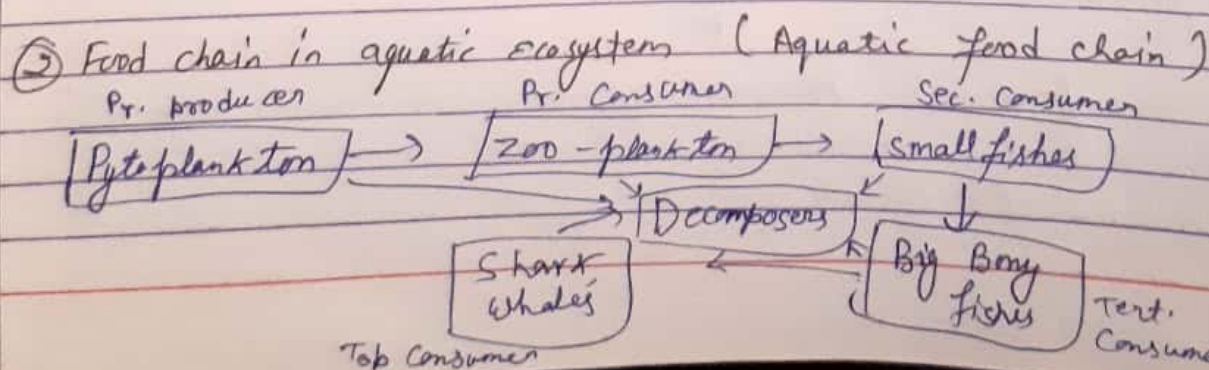 ② Food chain in aquatic ecosystem (Aquatic food chain)
Pr. producer Pr. Consumer Sec. Consumer
Pytoplankton → Zoo-plankton → small fishes
Decomposers
Shark Big Bony
whales fishes Tert.
Consume
Top Consumer